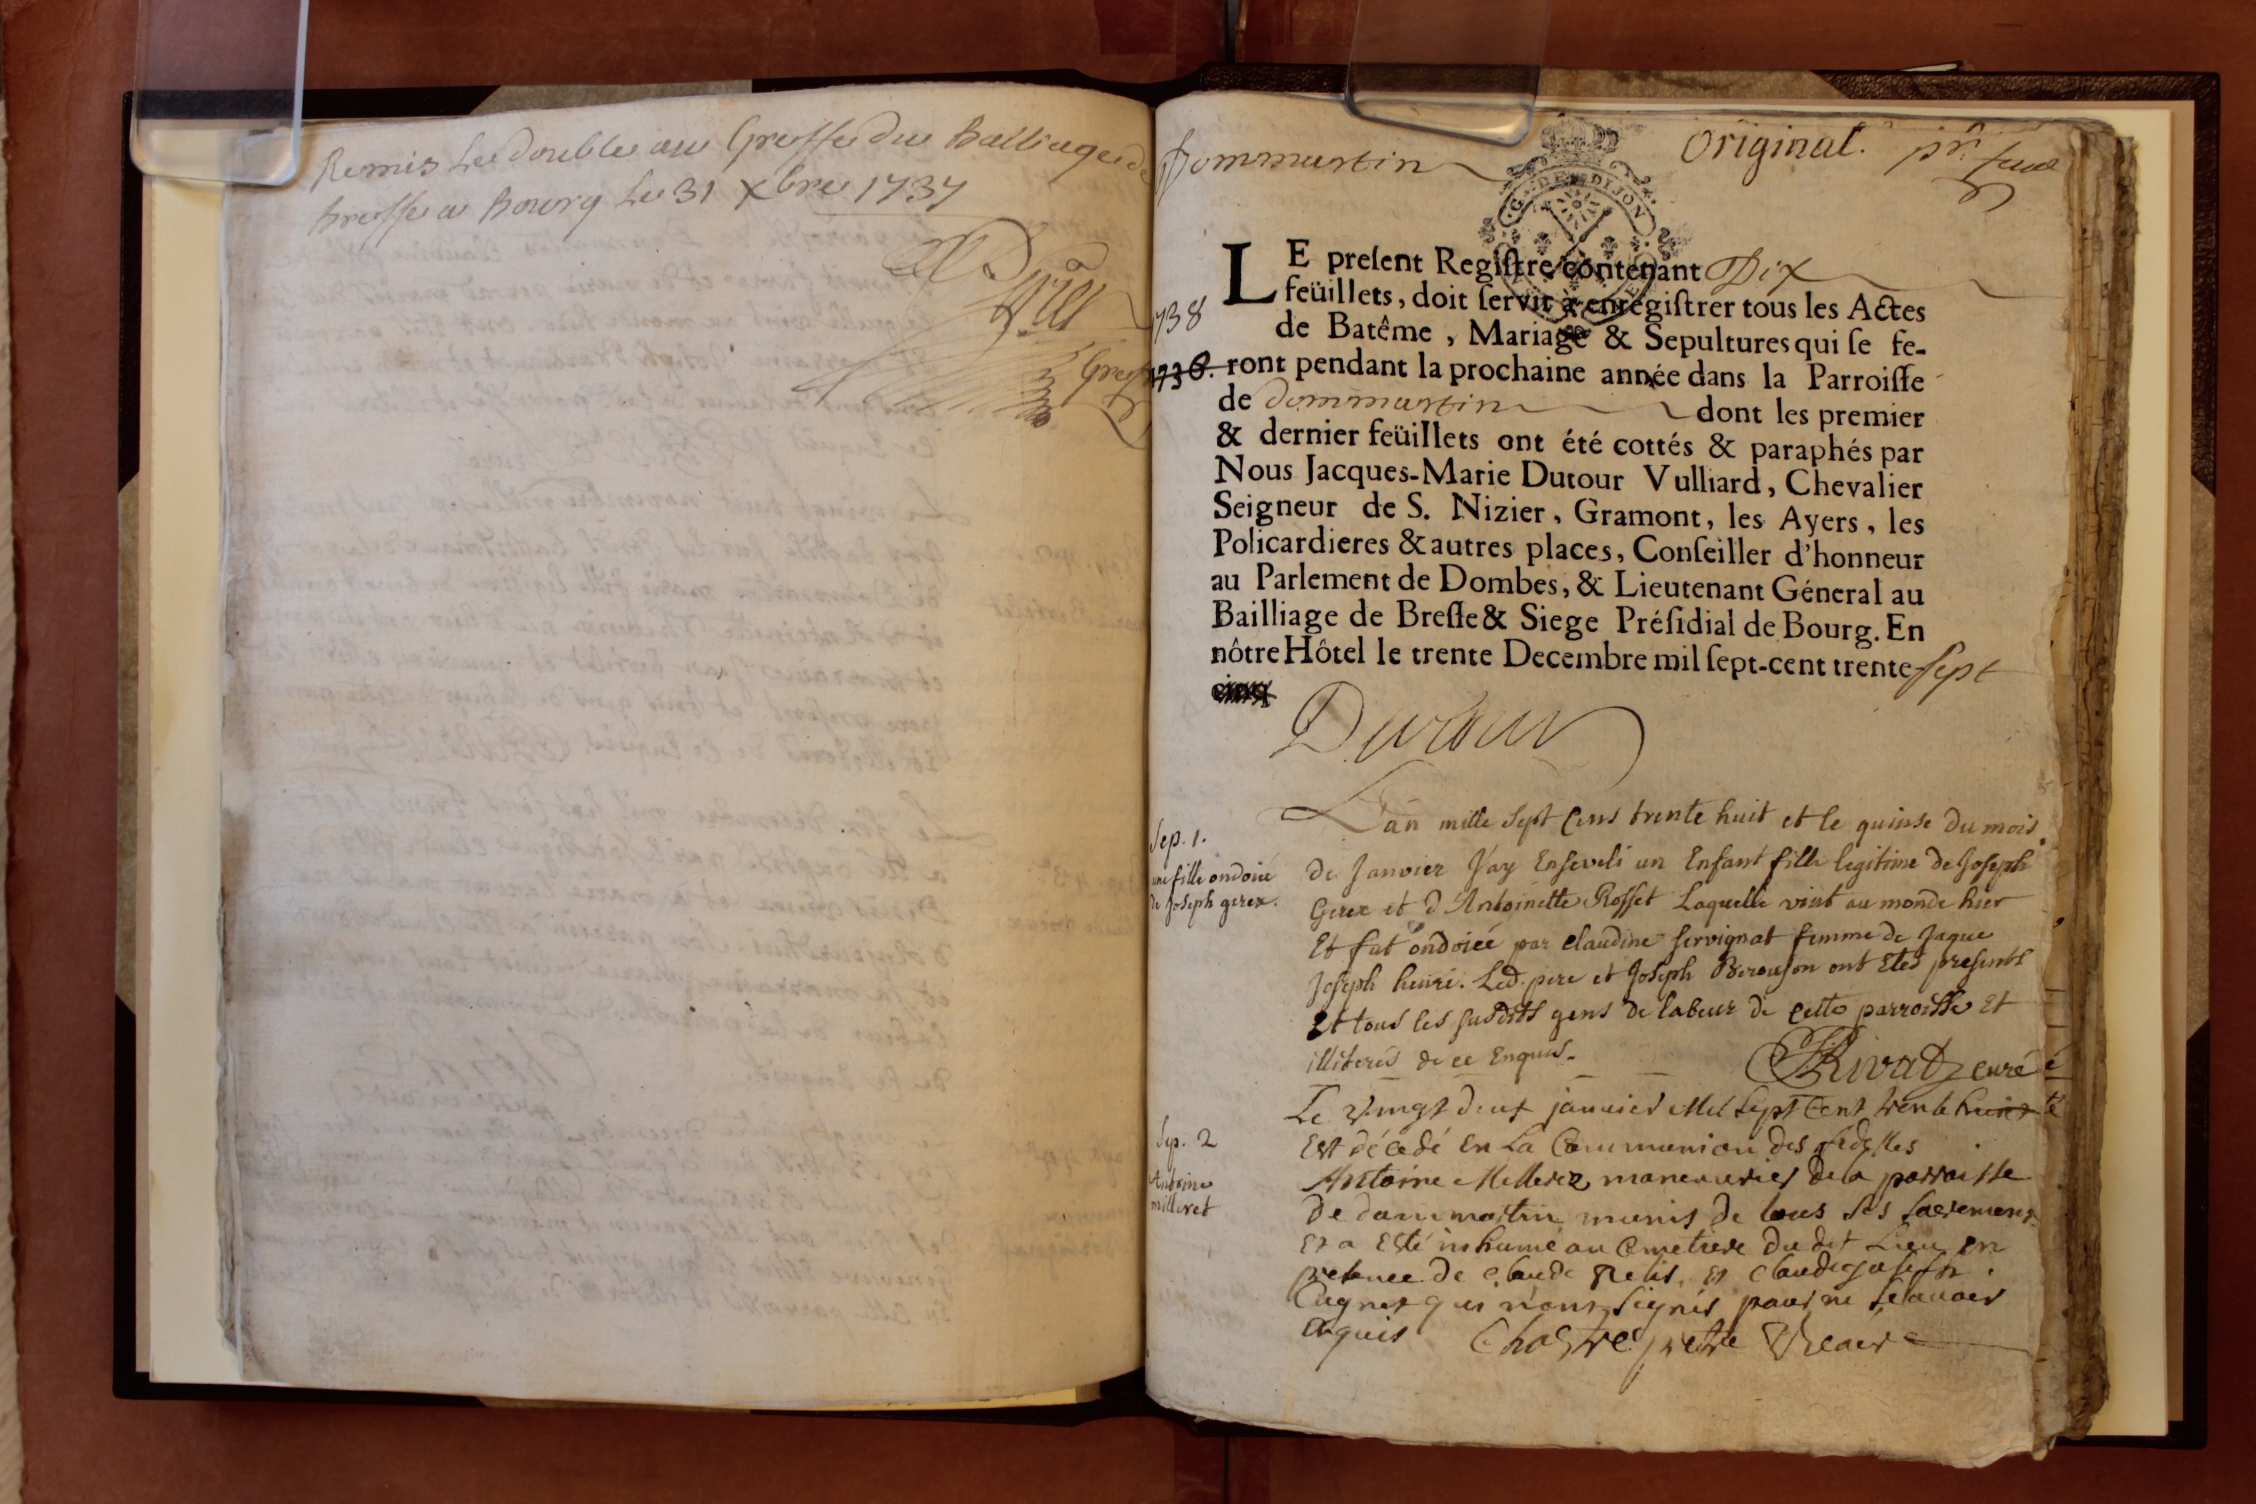 Remis Le double au Greffe du Balliage de
bresse a Bourg Le 31 xbre 1737
Greff
Dommartin
Original.
pr. feue
G. DE DIJON
1738
1736.
LE preſent Regiſtre contenant Dix
feüillets, doit ſervir à enregiſtrer tous les Actes
de Batême, Mariage & Sepultures qui ſe fe-
ront pendant la prochaine année dans la Parroiſſe
de dommartin dont les premier
& dernier feüillets ont été cottés & paraphés par
Nous Jacques-Marie Dutour Vulliard, Chevalier
Seigneur de S. Nizier, Gramont, les Ayers, les
Policardieres & autres places, Conſeiller d'honneur
au Parlement de Dombes, & Lieutenant Géneral au
Bailliage de Breſſe & Siege Préſidial de Bourg. En
nôtre Hôtel le trente Decembre mil ſept-cent trente-sept
cinq
Dutour
Sep. 1.
une fille ondoiié
de Joseph gerex.
L'an mille sept cens trente huit et le quinse du mois
de Janvier J'ay Enseveli un Enfant fille legitime de Joseph
Gerex et d'Antoinette Rosset Laquelle vint au monde hier
Et fut ondoiée par claudine servignat femme de Jaque
Joseph henri. Led. pere et Joseph Berouson ont Etes presents
Et tous les susdits gens de labeur de cette parroisse Et
illiterés de ce Enquis.
Rivat curé
Sep. 2
Antoine
milleret
Le Vingt deux janvier Mil sept Cent trente huict
Est décédé En La Communion des fidelles
Antoine Millerez maneuvrier de la parroisse
de dommartin munis de tous ses sacremens
Et a Esté inhumé au Cimetiere du dit Lieu En
presence de Claude Relis Et claude joseph
Cugnet qui n'ont signés pour ne sçavoir
Enquis Chastre pretre Vicaire